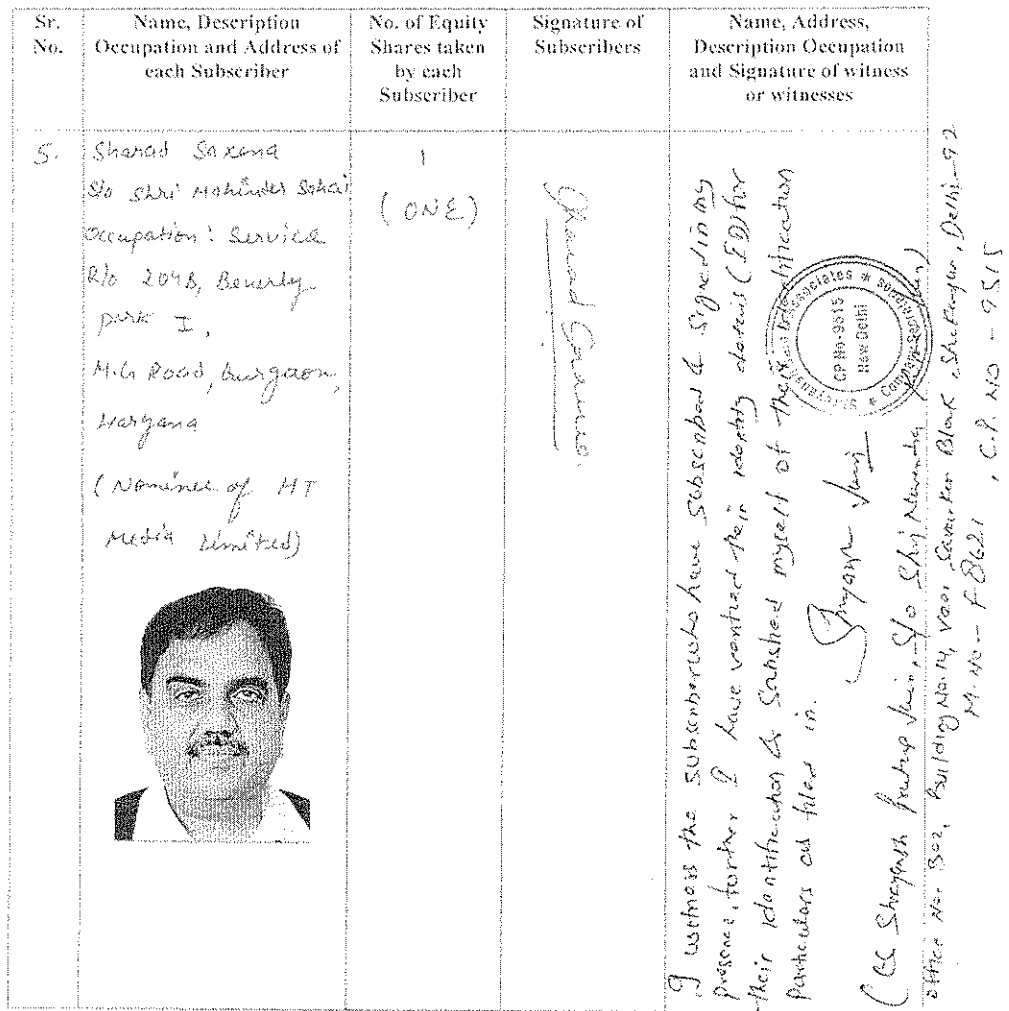 Sr.
No.
Name, Description
Occupation and Address of
each Subscriber
No. of Equity
Shares taken
by each
Subscriber
Signature of
Subscribers
Name, Address,
Description Occupation
and Signature of witness
or witnesses
5.
Sharad Saxena
S/o Shri Mohinder Sahai
Occupation: Service
R/o 204B, Beverly
park I,
M.G Road, Gurgaon,
Haryana
(Nominee of HT
Media Limited)
1
(ONE)
Sharad Saxena
I witness the Subscriber who have Subscribed & Signed in my
presence, further I have verified their identity details (ID) for
their identification & Satisfied myself of their identification
particulars as filled in.
Shreyansh Jain
(CS Shreyansh Pratap Jain, S/o Shri Narendra
Office No. 302, Building No. 14, Veer Savarkar Block, Shakarpur, Delhi-92
M. No - F8621, C.P. NO - 9515
Associates * Company Secretaries *
CP No-9515
New Delhi